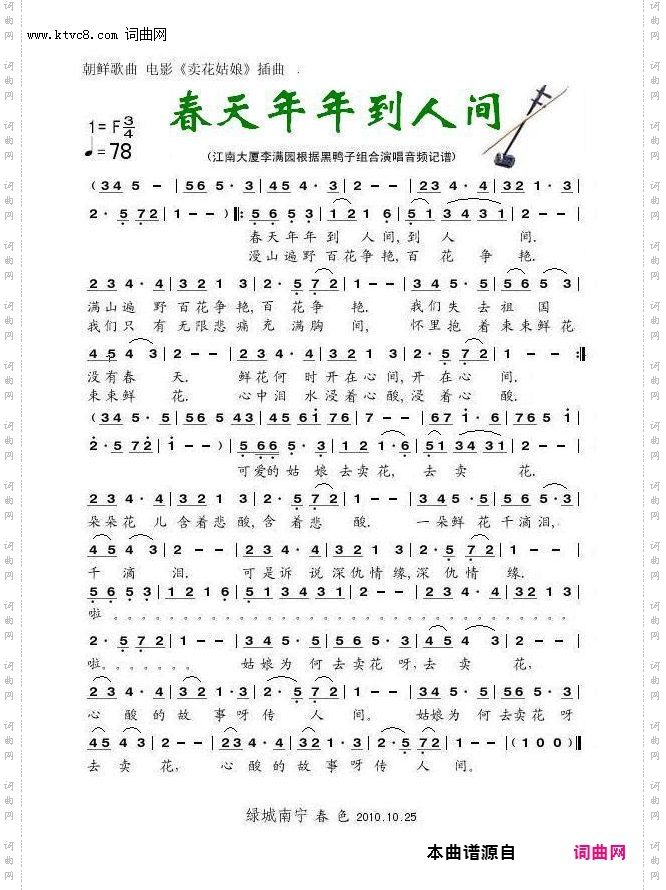 www.ktvc8.com 词曲网
朝鲜歌曲 电影《卖花姑娘》插曲 .
春天年年到人间
1=F 3/4
♩=78
(江南大厦李满园根据黑鸭子组合演唱音频记谱)
(3 4 5 - | 5 6 5 · 3 | 4 5 6 - | 5 4 3 - | 2 3 4 · 4 | 3 2 1 · 3 |
2 · 5 7 2 | 1 - - ) ‖: 5 6 5 3 | 1 2 1 6 | 5 1 3 4 3 1 | 2 - - |
春天年年到 人间,到 人 间.
漫山遍野 百花争艳,百 花 争 艳.
2 3 4 · 4 | 3 2 1 · 3 | 2 · 5 7 2 | 1 - - | 3 4 5 · 5 | 5 6 5 · 3 |
满山遍 野 百花争艳,百 花争 艳. 我们失 去 祖 国
我们只 有 无限悲痛 充 满胸 间, 怀里抱 着 束束鲜花
4 5 4 3 | 2 - - | 2 3 4 · 4 | 3 2 1 · 3 | 2 · 5 7 2 | 1 - - :‖
没有春 天. 鲜花何 时 开在心间,开 在心 间.
束束鲜 花. 心中泪 水 浸着心酸,浸 着心 酸.
(3 4 5 · | 5 6 5 4 3 | 4 5 6 1 7 6 | 7 - - | 6 7 1 · 6 | 7 6 5 1 |
2 · 5 7 2 | 1 - - ) | 5 6 6 5 · 3 | 1 2 1 · 6 | 5 1 3 4 3 1 | 2 - - |
可爱的 姑 娘 去卖花, 去 卖 花.
2 3 4 · 4 | 3 2 1 · 3 | 2 · 5 7 2 | 1 - - | 3 4 5 · 5 | 5 6 5 · 3 |
朵朵花 儿 含着悲酸,含 着悲 酸. 一朵鲜 花 千滴泪,
4 5 4 3 | 2 - - | 2 3 4 · 4 | 3 2 1 · 3 | 2 · 5 7 2 | 1 - - |
千 滴 泪. 可是诉 说 深仇情缘,深 仇情 缘.
5 6 5 3 | 1 2 1 6 | 5 1 3 4 3 1 | 2 - - | 2 3 4 · 4 | 3 2 1 · 3 |
啦 。。。。。。。。。。。。。。。。。。。
2 · 5 7 2 | 1 - - | 1 - - | 3 4 5 · 5 | 5 6 5 · 3 | 4 5 4 3 | 2 - - |
啦。。。。。。。 姑娘为 何 去卖花 呀,去 卖 花,
2 3 4 · 4 | 3 2 1 · 3 | 2 · 5 7 2 | 1 - - | 3 4 5 · 5 | 5 6 5 · 3 |
心 酸的 故 事呀 传 人 间。 姑娘为 何 去卖花 呀
4 5 4 3 | 2 - - | 2 3 4 · 4 | 3 2 1 · 3 | 2 · 5 7 2 | 1 - - | (1 0 0 ) ‖
去 卖 花, 心 酸的 故 事呀 传 人 间。
绿城南宁 春 色 2010.10.25
本曲谱源自 词曲网